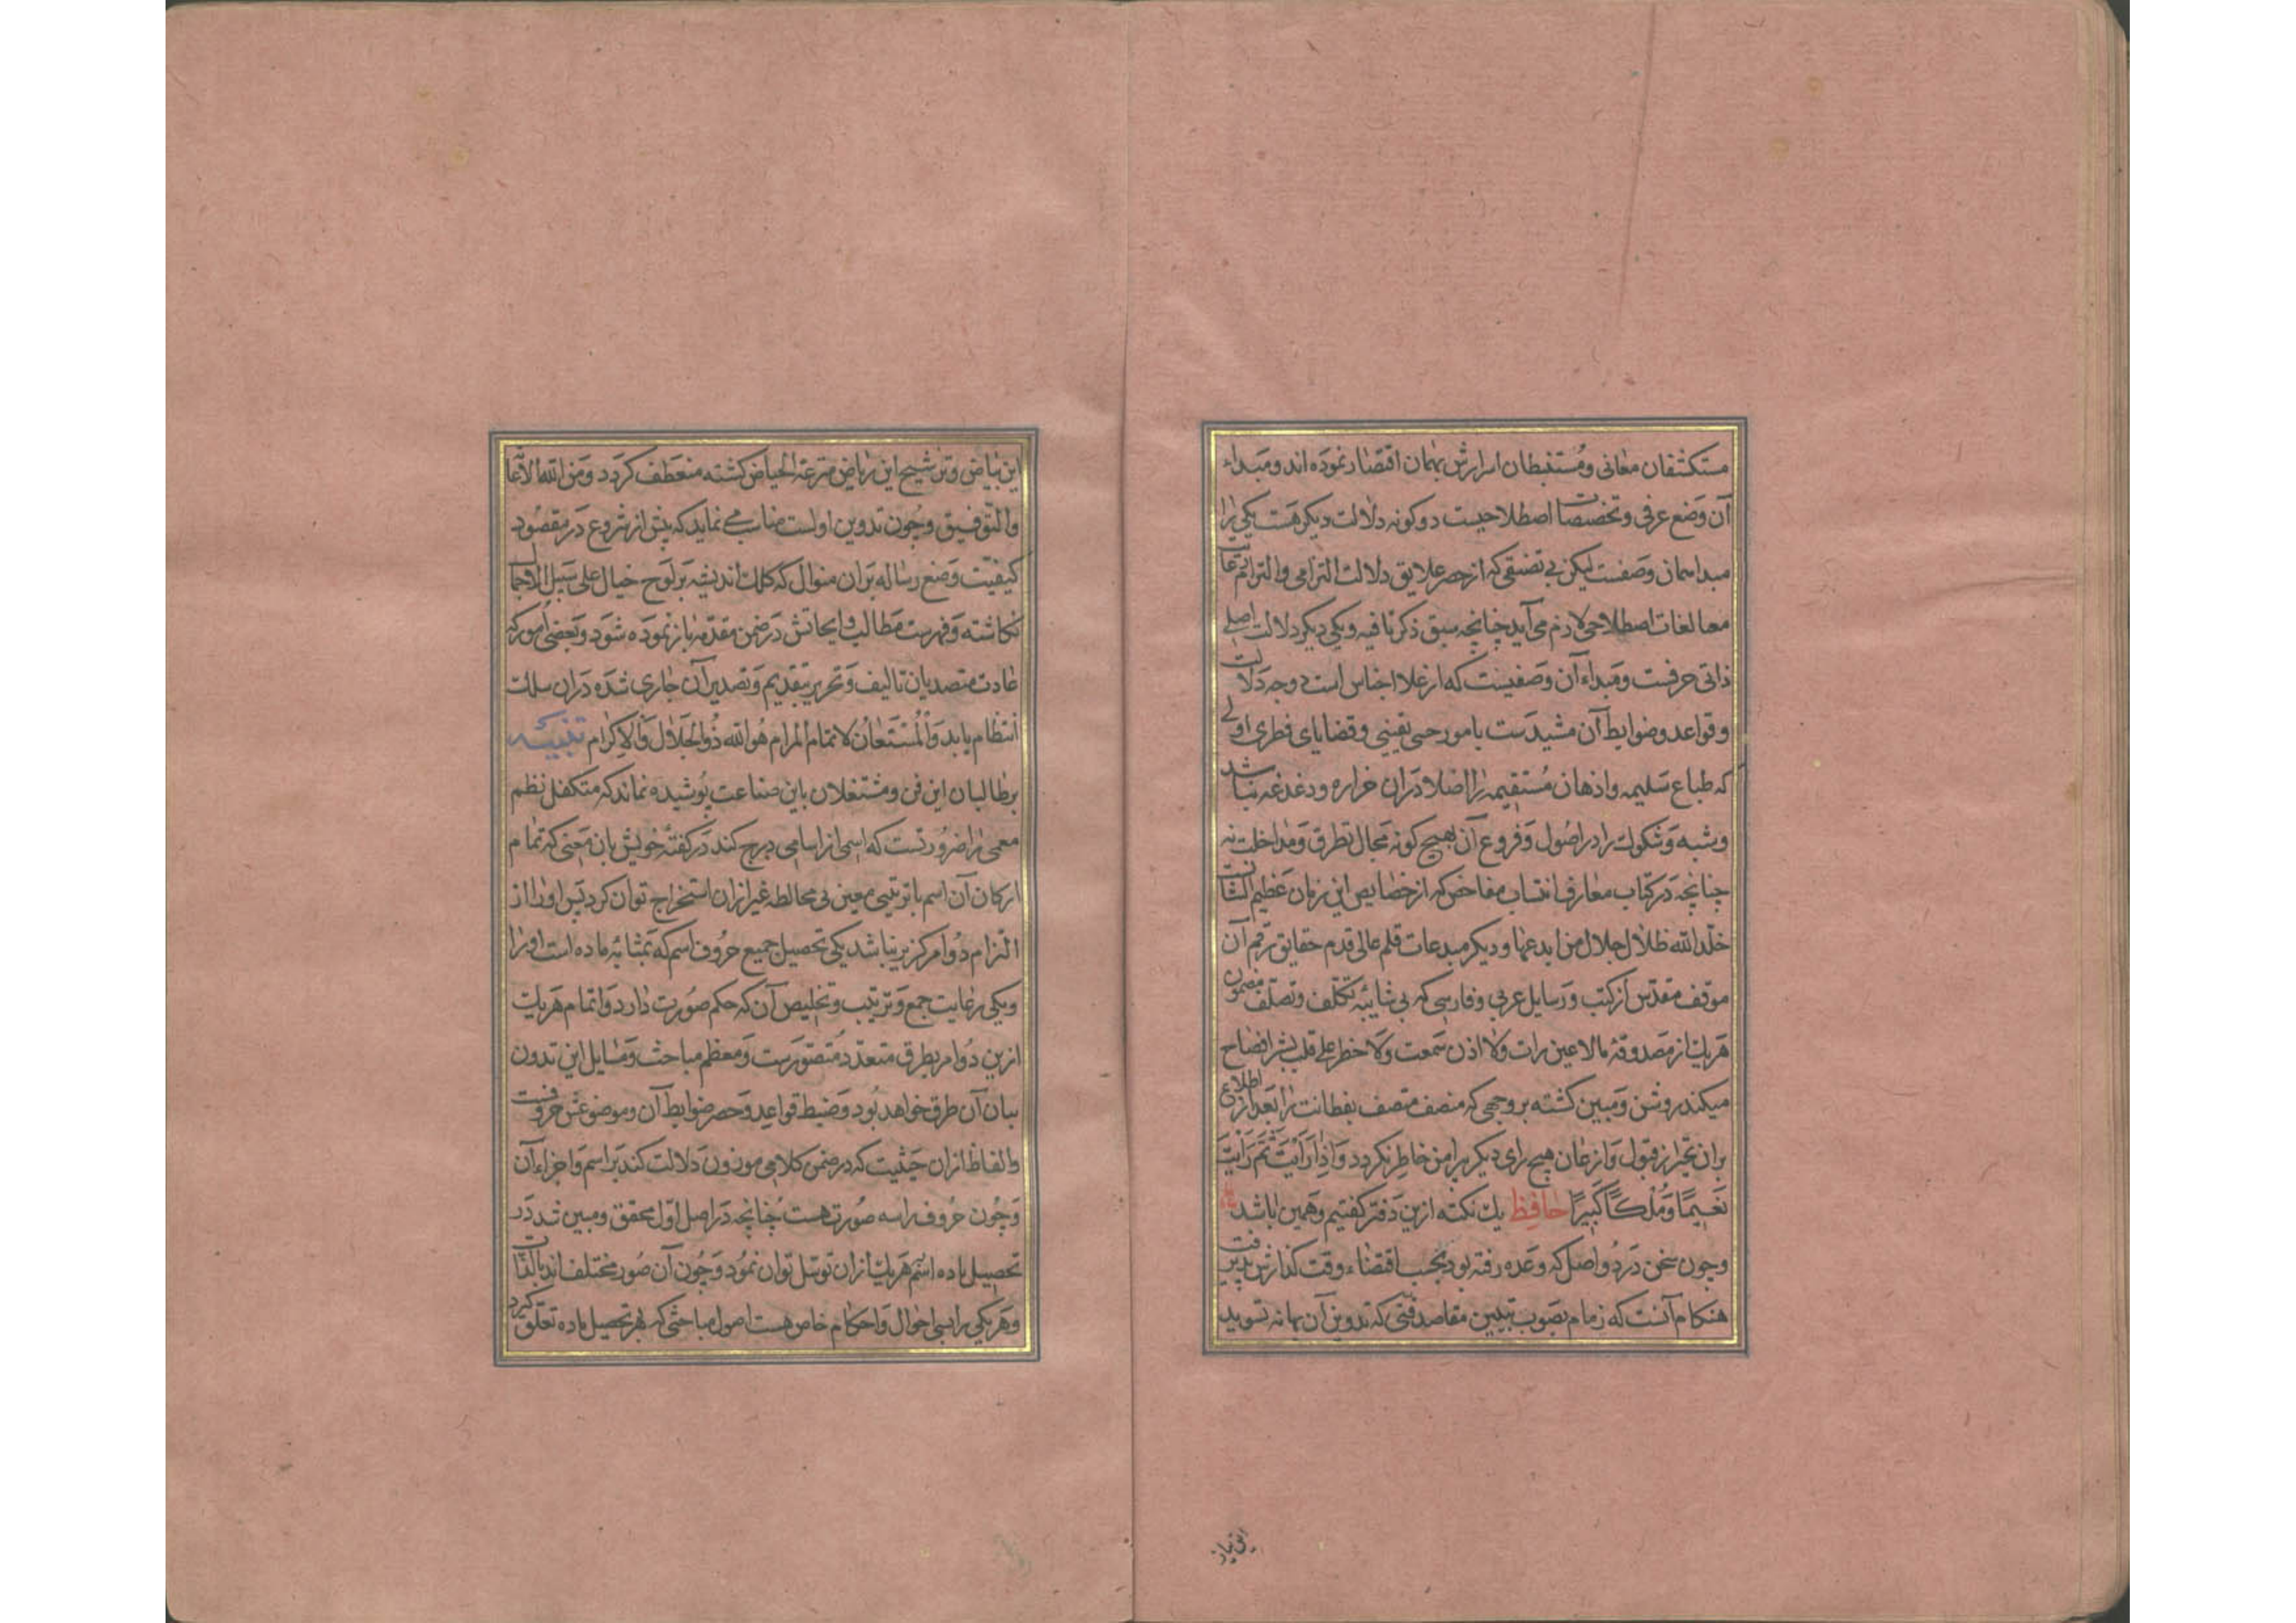 مستکشفان معانی و مستنبطان اسرارش بهمان اقتصار نموده اند و مبداء
آن وضع عرفی و تخصیصات اصطلاحیست دو کونه دلالت دیکر هست یکی را
مبدا همان وضعست لیکن بی تضیقی که از حصر علایق دلالت التزامی و التزام رعایت
معالغات اصطلاحی لازم می آید چنانچه سبق ذکر نا فیه و یکی دیکر دلالت اصلی
ذاتی حرفست و مبداء آن وضعیست که از غلا اجناس است دو وجه دلالت
و قواعد و ضوابط آن مشیدست بامور حسی یقینی و قضایای فطری اولی
که طباع سلیمه و اذهان مستقیمه را اصلا دران خراره و دغدغه نباشد
و شبه و شکوک را در اصول و فروع آن بهیچ کونه مجال تطرق و مداخلت نه
چنانچه در کتاب معارف انتساب مفاحص که از خصایص این زمان عظیم الشانست
خلد الله ظلال جلال من ابدعها و دیکر مبدعات قلم عالی قدم حقایق رقم آن
موقف مقدس از کتب و رسایل عربی و فارسی که بی شایبه تکلف و تصلف مضمون
هریک از مصدوقه ما لا عین رات ولا اذن سمعت ولا خطر علی قلب بشر افضاح
میکند روشن و مبین کشته بر وجهی که منصف متصف بفطانت را بعد از اطلاع
بران بجز از قبول و ازعان هیچ رای دیکر پیرامن خاطر نکردد وَاِذَا رَاَيْتَ ثَمَّ رَاَيْتَ
نَعِيمًا وَمُلْكًا كَبِيرًا حافظ یک نکته ازین دفتر کفتیم و همین باشد
و چون سخن در دو اصل که وعده رفته بود بحسب اقتضاء وقت کذارش پذیرفت
هنکام آنست که زمام بصوب تبیین مقاصد فنی که تدوین آن بهانه تسوید
این بیاض
این بیاض و ترشیح این ریاض مترعة الحیاض کشته منعطف کردد و من الله الاعا
والتوفیق و چون تدوین اولست مناسب می نماید که پیش از شروع در مقصود
کیفیت وضع رساله بران منوال که کلک اندیشه بر لوح خیال علی سبیل الاجمال
نکاشته و فهرست مطالب و ابحاثش در ضمن مقدمه باز نموده شود و بعضی امور که
عادت متصدیان تالیف و تحریر بتقدیم و تصدیر آن جاری شده دران سلک
انتظام یابد وَالْمُسْتَعَانُ لاتمام المرام هُوَ الله ذُو الجَلَالِ وَالاِكرام تنبیه
بر طالبان این فن و مشتغلان باین صناعت پوشیده نماند که متکفل نظم
معمی را ضرورتست که اسمی از اسامی درج کند در کفتهٔ خویش بان معنی که تمام
ارکان آن اسم با ترتیبی معین بی مخالطه غیر ازان استخراج توان کرد پس او را از
التزام دو امر کزیر نباشد یکی تحصیل جمیع حروف اسم که بمثابهٔ ماده است او را
و یکی رعایت جمع و ترتیب و تخلیص آن که حکم صورت دارد و اتمام هریک
ازین دو امر بطرق متعدد متصورست و معظم مباحث و مسایل این تدوین
بیان آن طرق خواهد بود و ضبط قواعد و حصر ضوابط آن و موضوعش حروفست
والفاظ ازان حیثیت که در ضمن کلامی موزون دلالت کند بر اسم و اجزاء آن
و چون حروف را سه صورت هست چنانچه در اصل اول محقق و مبین شد در
تحصیل ماده اسم هریک ازان توسل توان نمود و چون آن صور مختلف اند بالذات
و هر یکی را بسی احوال و احکام خاص هست اصول مباحثی که بهر تحصیل ماده تعلق کیرد